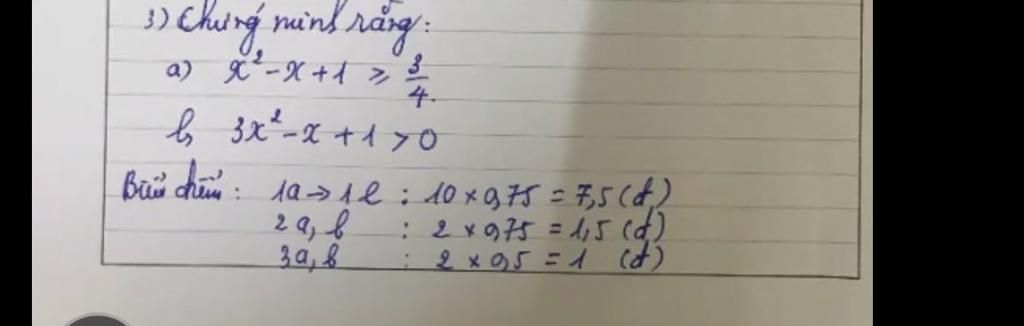 3) Chứng minh rằng:
a) x² - x + 1 ≥ 3/4.
b, 3x² - x + 1 > 0
Biểu điểm: 1a → 1l : 10 × 0,75 = 7,5 (đ)
2a, b : 2 × 0,75 = 1,5 (đ)
3a, b : 2 × 0,5 = 1 (đ)